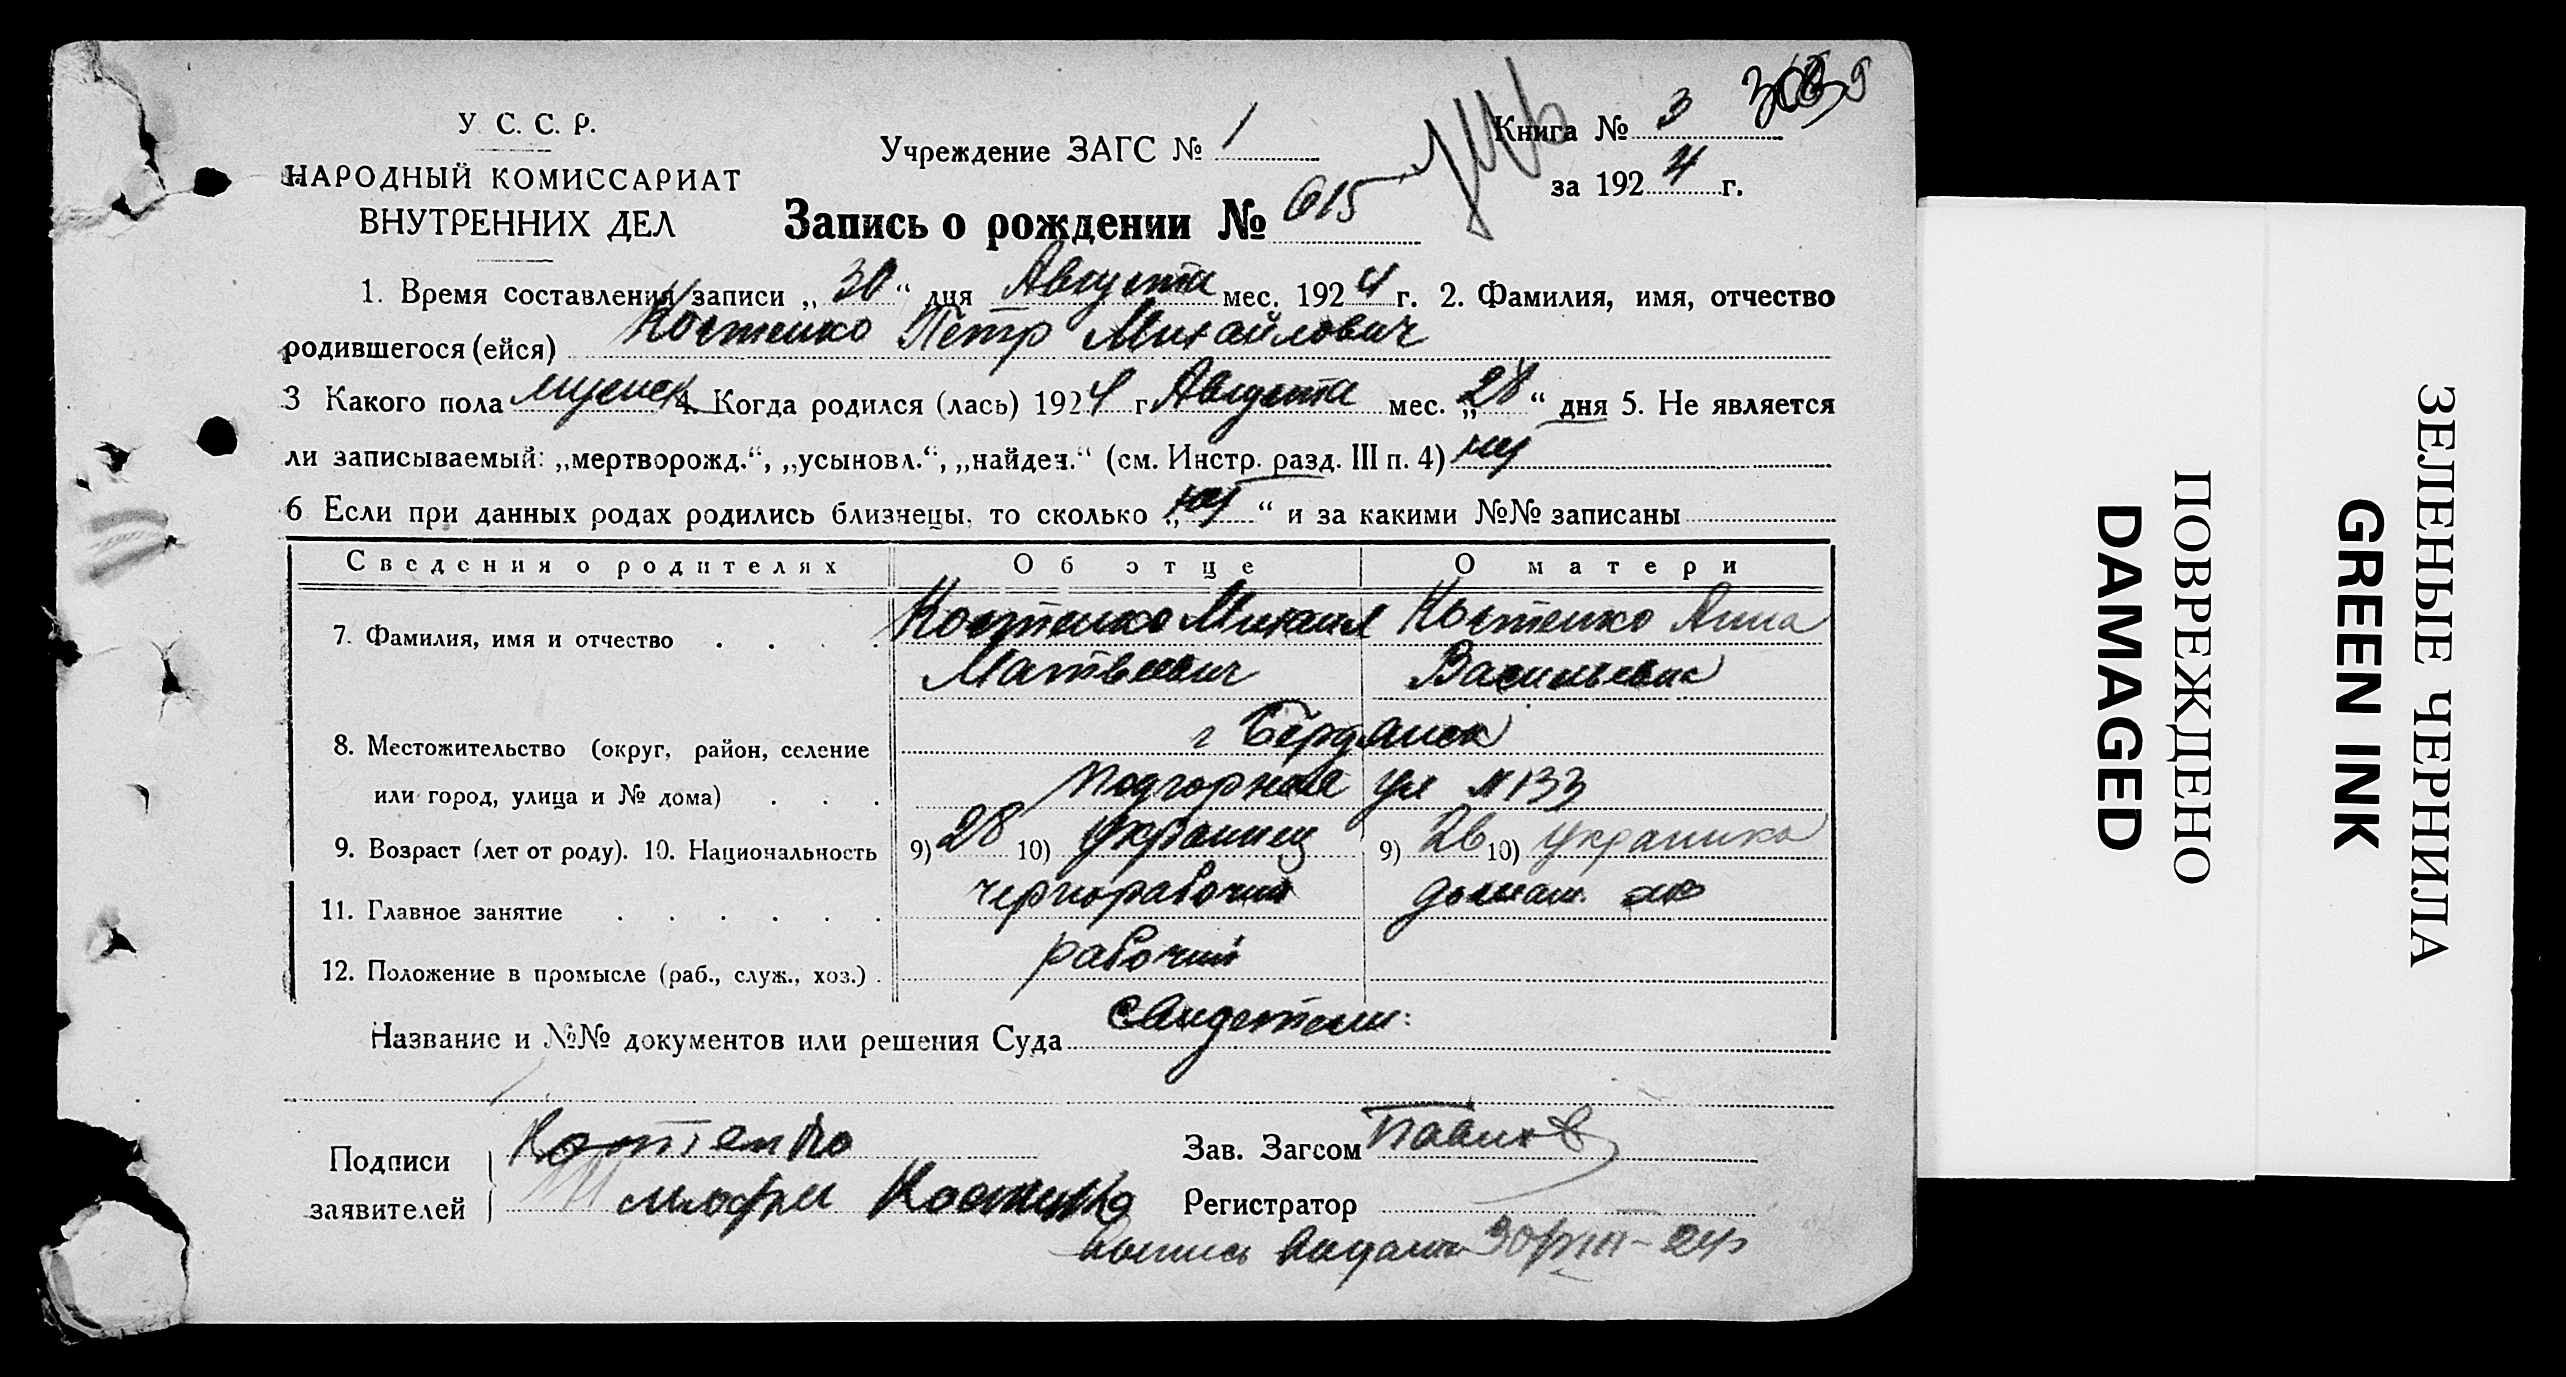 У. С. С. Р.
НАРОДНЫЙ КОМИССАРИАТ
ВНУТРЕННИХ ДЕЛ
Учреждение ЗАГС № 1
Книга № 3
за 1924 г.
Запись о рождении № 615
1. Время составления записи „30“ дня Августа мес. 1924 г. 2. Фамилия, имя, отчество
родившегося (ейся) Костенко Петр Михайлович
3 Какого пола мужск 4. Когда родился (лась) 1924 г Августа мес. „28“ дня 5. Не является
ли записываемый: „мертворожд.“, „усыновл.“, „найден.“ (см. Инстр. разд. III п. 4) нет
6 Если при данных родах родились близнецы, то сколько „нет“ и за какими №№ записаны
Сведения о родителях Об отце О матери
7. Фамилия, имя и отчество Костенко Михаил Костенко Анна
Матвеевич Васильевна
г Бердянск
8. Местожительство (округ, район, селение
или город, улица и № дома) Подгорная ул № 133
9. Возраст (лет от роду). 10. Национальность 9) 28 10) украинец 9) 26 10) украинка
11. Главное занятие чернорабочий домаш. хоз
12. Положение в промысле (раб., служ., хоз.) рабочий
Название и №№ документов или решения Суда свидетели:
Подписи
заявителей
Костенко
Костенко
Зав. Загсом Павлов
Регистратор
выдана 30/VIII-24г
ПОВРЕЖДЕНО
DAMAGED
ЗЕЛЕНЫЕ ЧЕРНИЛА
GREEN INK